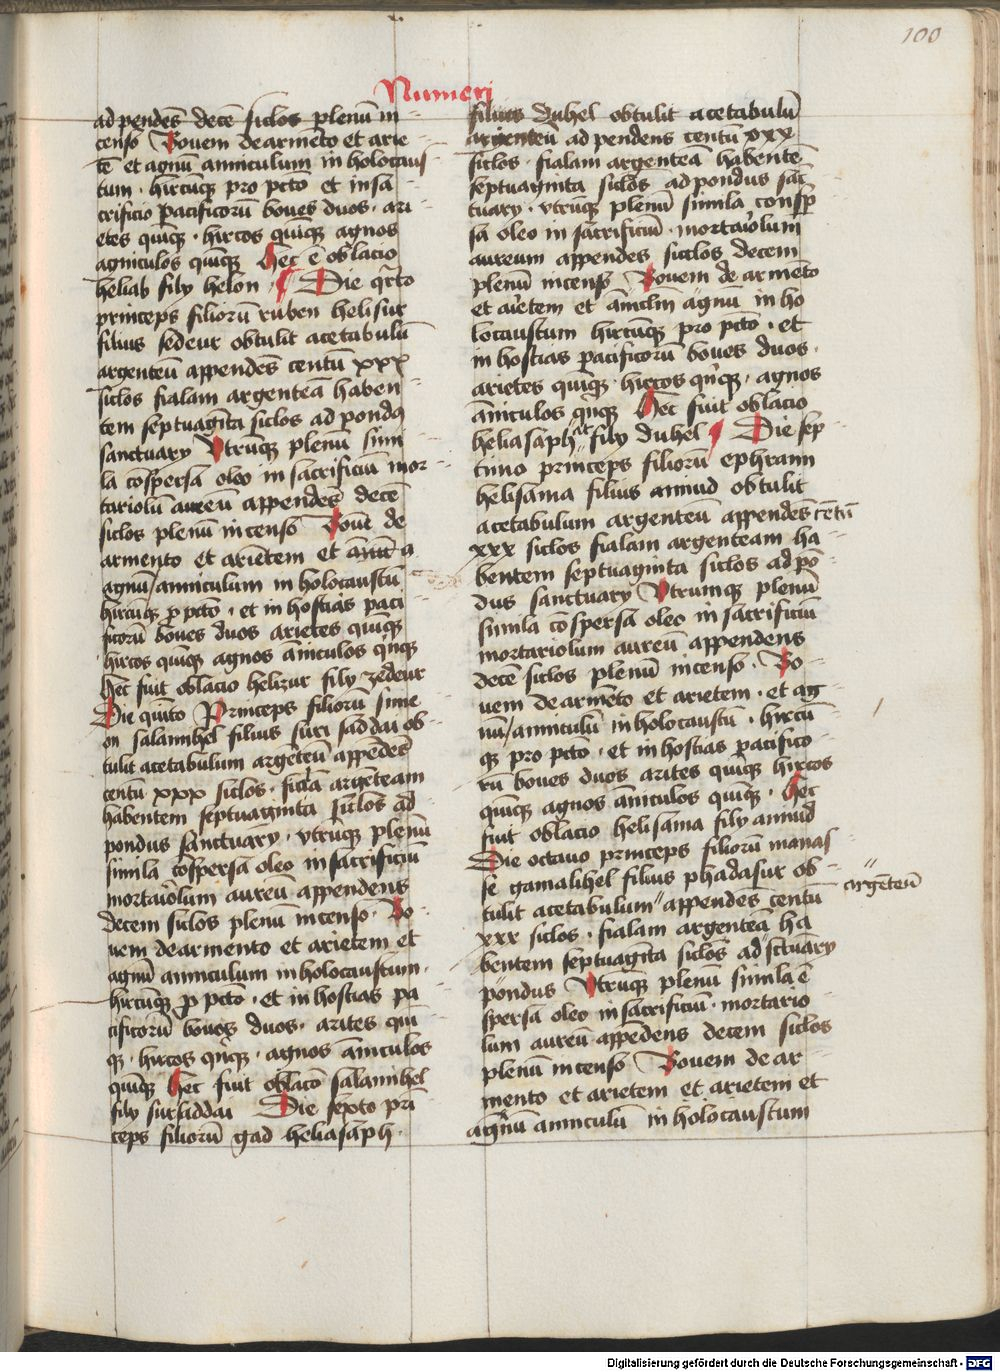 100
Numeri
ad pendēs decē siclos plenū in
censo Bouem de armēto et arie
tē et agnū anniculum in holocaus
tum · hircūq pro pctō et in sa
crificio pacificorū boues duos · ari
etes quīq · hircos quīq agnos
agniculos quīq Hec ē oblacio
heliab fily helon · Die qrto
princeps filiorū ruben helisur
filius sedeur obtulit acetabulū
argenteū appendēs centū xxx
siclos fialam argenteā haben
tem septuagīta siclos ad pondꝯ
sanctuary Vtrūq plenū simi
la cōspersa oleo in sacrificiū mor
tariolū aureū appendēs decē
siclos plenū incenso Bouē de
armento et arietem et
agnū anniculum in holocaustū
hircūq p pctō · et in hostias paci
ficorū boues duos arietes quīq
hircos quīq agnos āniculos qīnq
Hec fuit oblacio helizur fily zedeur
Die quīto Princeps filiorū sime
on salamihel filius suri saddai ob
tulit acetabulum argēteū appēdēs
centū xxx siclos · fialā argēteam
habentem septuaginta siclos ad
pondus sanctuary · vtrūq plenū
simila cōspersa oleo in sacrificiū
mortariolum aureū appendens
decem siclos plenū incenso · Bo
uem de armento et arietem et
agnū anniculum in holocaustum ·
hircūq p pctō · et in hostias pa
cificorū boues duos · arites qui
q · hircos qīnq · agnos āniculos
quīq Hec fuit oblacō salamihel
fily surisaddai Die sexto prī
ceps filiorū gad heliasaph ·
filius duhel obtulit acetabulū
argenteū ad pendens centū xxx
siclos · fialam argenteā habentē
septuaginta siclos ad pondus sāc
tuary · vtrūq plenū simila consp
sa oleo in sacrificiū · mortariolum
aureum appendes sictlos decem
plenū incenso Bouem de armēto
et arietem et āniclm agnū in ho
locaustum hircūq pro pctō · et
in hostias pacificorū boues duos ·
arietes quīq · hircos qīnq · agnos
āniculos qīnq Hec fuit oblacio
heliasaph fily duhel Die sep
timo princeps filiorū ephraim
helisama filius amiud obtulit
acetabulum argenteū appendēs cētū
xxx siclos fialam argenteam ha
bentem septuaginta siclos ad pō
dus sanctuary Vtrumq plenū
simila cōspersa oleo in sacrificiū
mortariolum aureū appendens
decē siclos plenū incenso · Bo
uem de armēto et arietem · et ag
nū anniculū in holocaustū · hircū
q pro pctō · et in hostias pacifico
rū boues duos arites quīq hircos
quīq agnos āniculos quīq · Hec
fuit oblacio helisama fily amiud
Die octauo princeps filiorū manas
se gamalihel filius phadasur ob
tulit acetabulum appendēs centū
argēteū
xxx siclos · fialam argenteā ha
bentem septuagīta siclos ad sctuāry
pondus Vtrūq plenū simila cō
spersa oleo in sacrificiū · mortario
lum aureū appēdens decem siclos
plenū incenso Bouem de ar
mento et arietem et arietem et
agnū anniculū in holocaustum
Digitalisierung gefördert durch die Deutsche Forschungsgemeinschaft - DFG